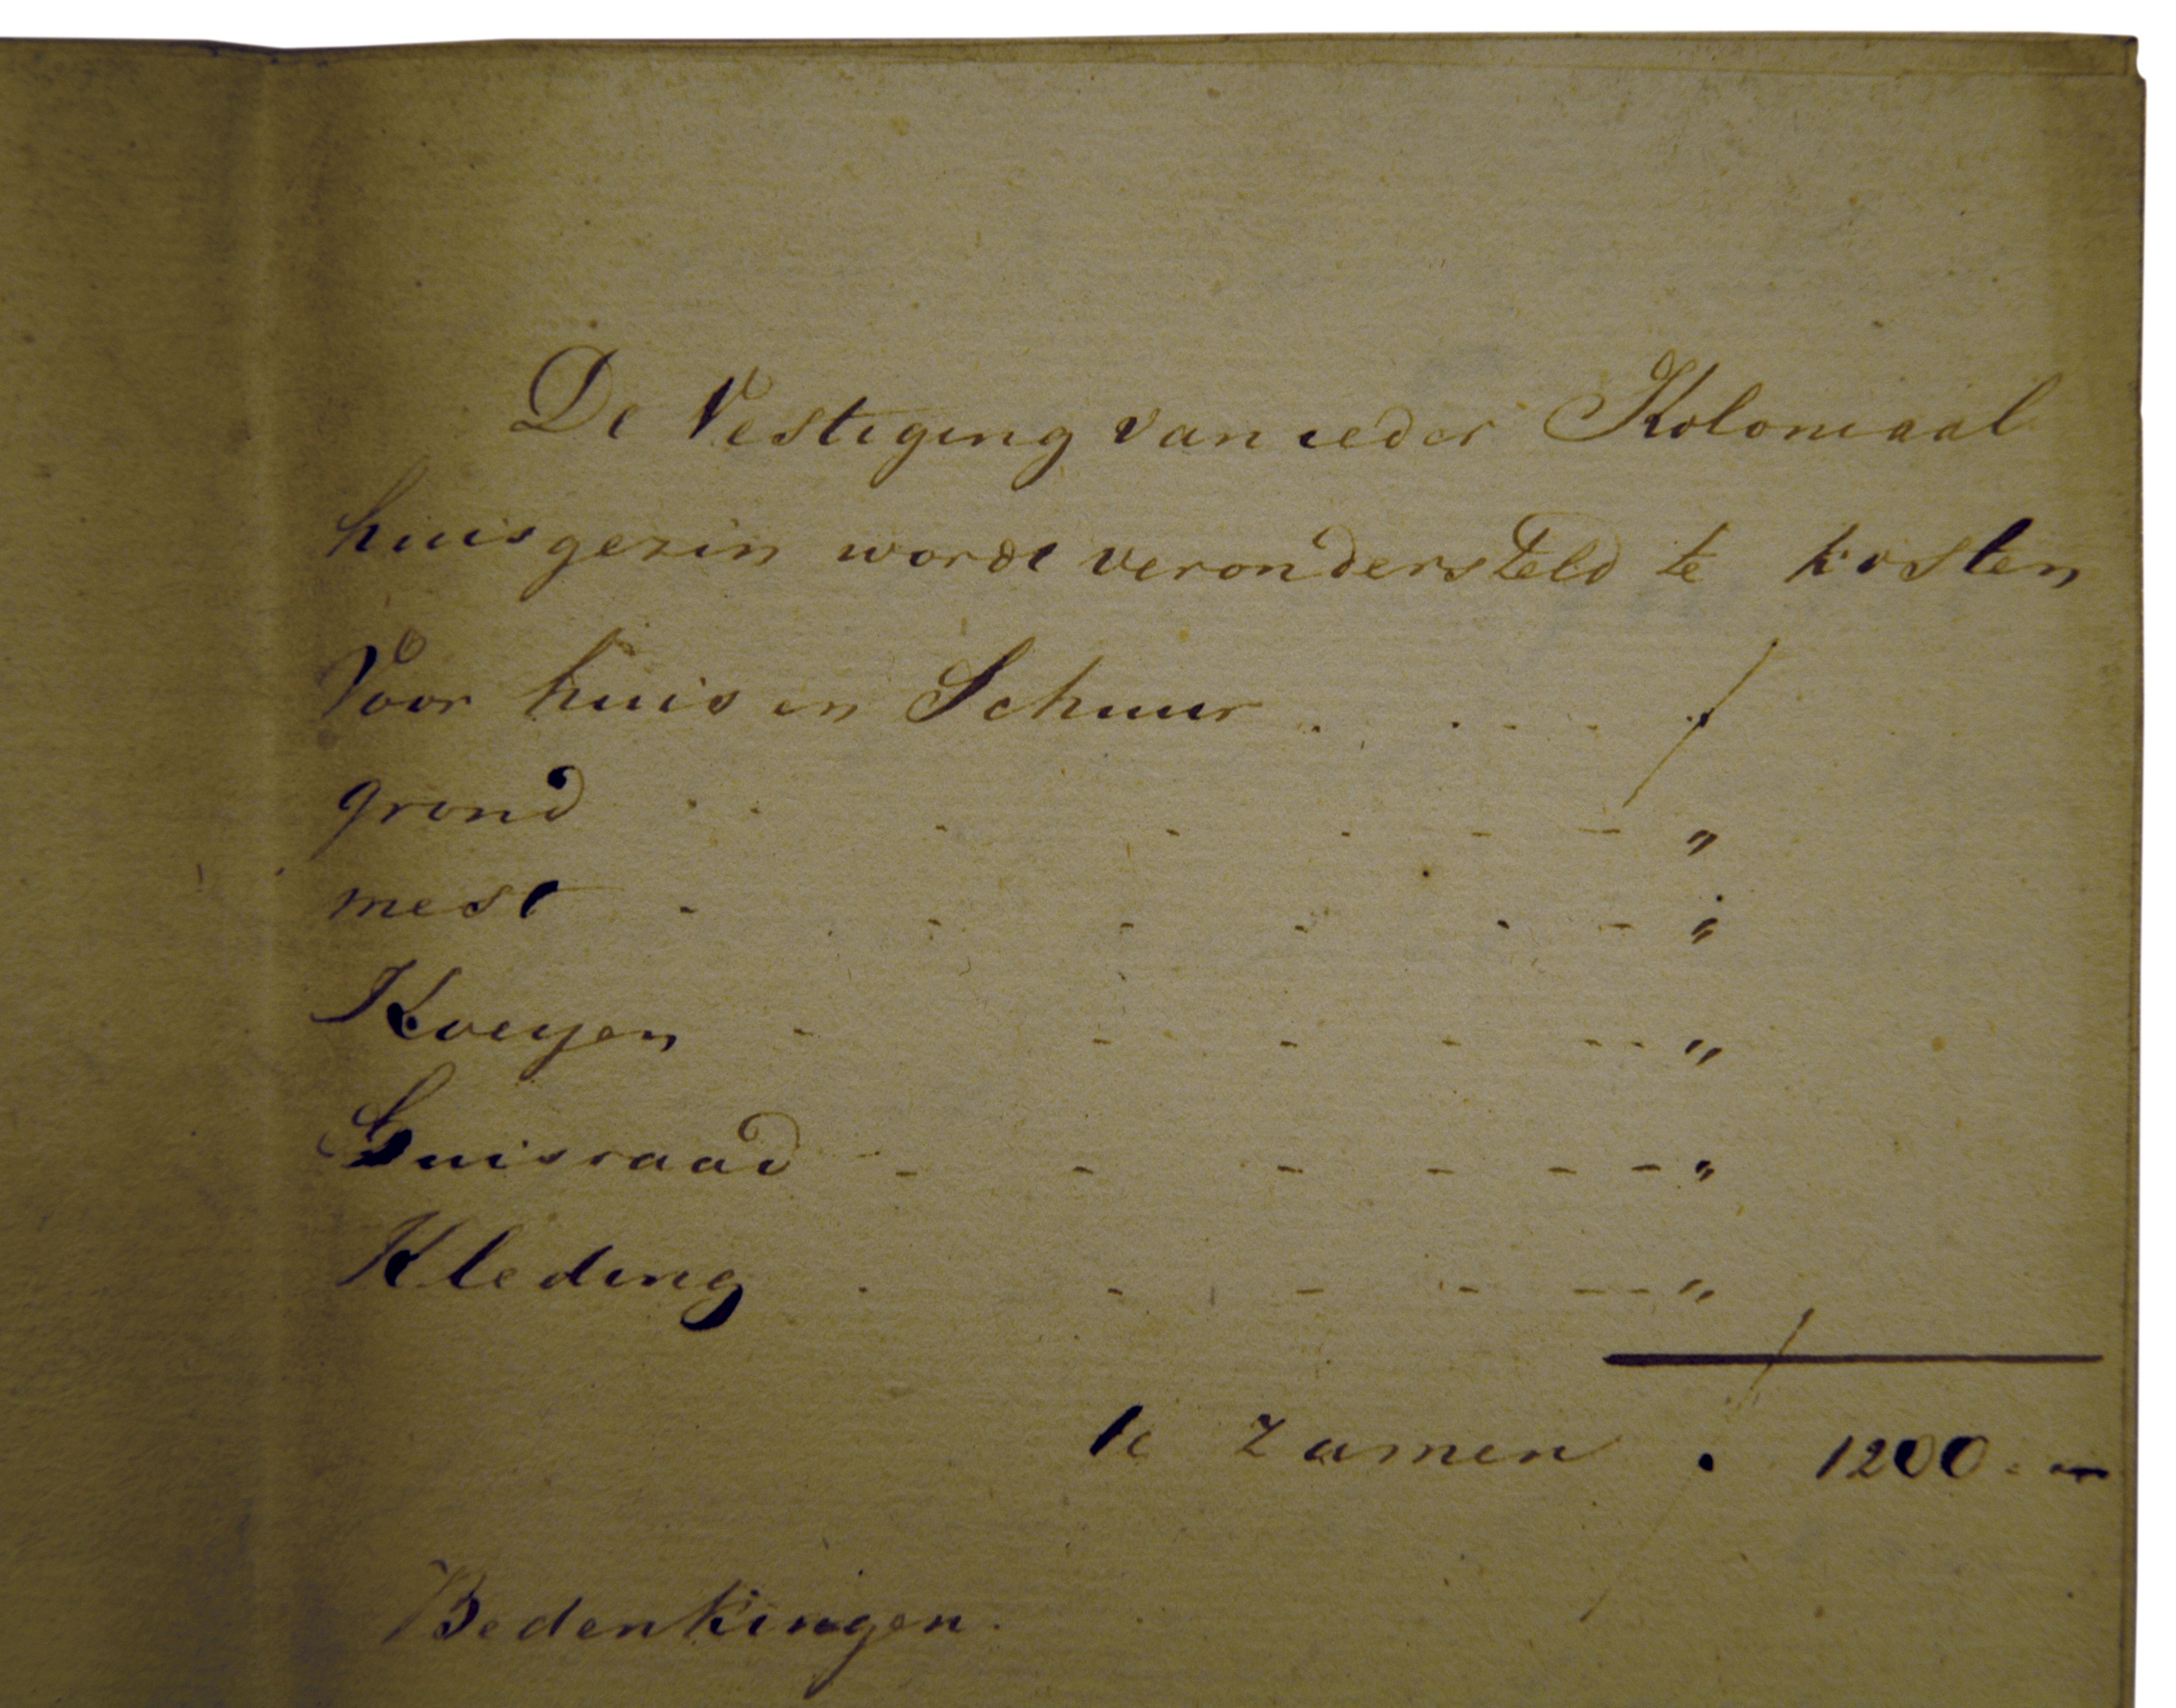 De Vestiging van ieder Koloniaal
huisgezin wordt verondersteld te kosten
Voor huis en Schuur . . . . . ƒ
grond . . . - - - - „
mest - . - - - - - „
Koeyen - - - - - - „
Huisraad - - - - - - „
Kleding . - - - - - „
te zamen ƒ 1200. -
Bedenkingen.